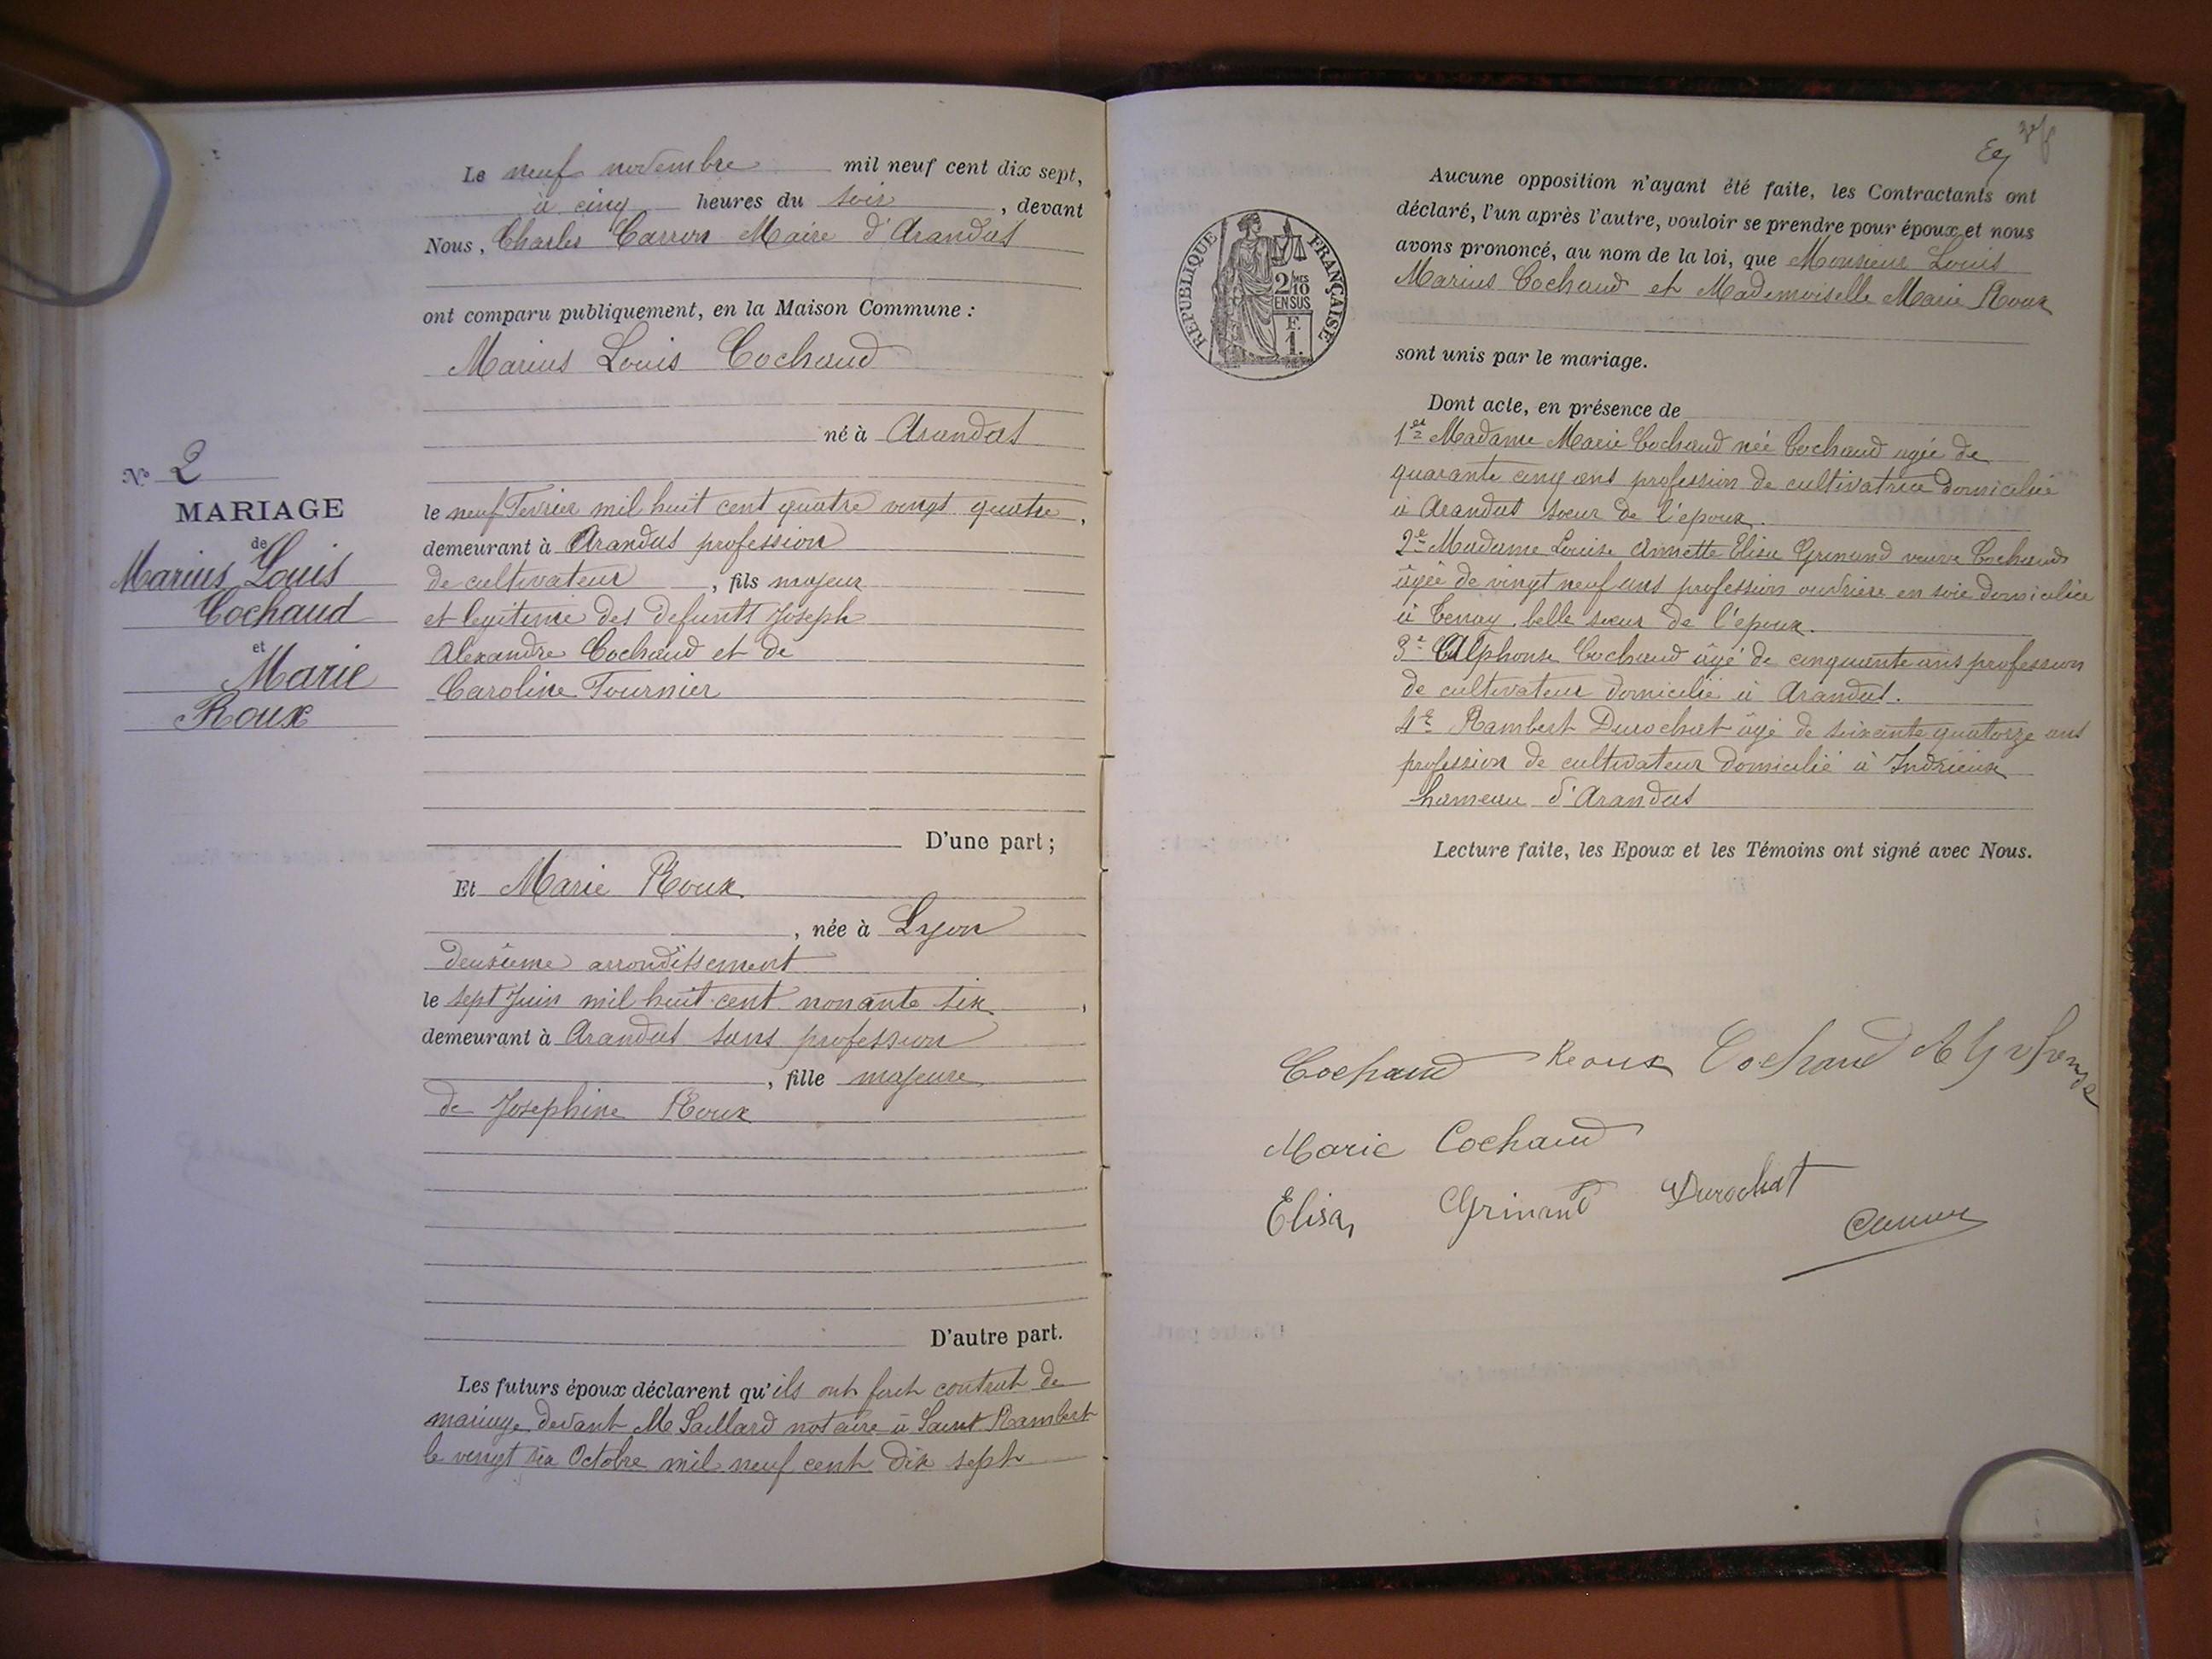 Le neuf novembre mil neuf cent dix sept,
à cinq heures du soir, devant
Nous, Charles Carron Maire d'Arandas
ont comparu publiquement, en la Maison Commune :
Marius Louis Cochaud
né à Arandas
le neuf Fevrier mil huit cent quatre vingt quatre,
demeurant à Arandas profession
de cultivateur, fils majeur
et legitime des defunts Joseph
Alexandre Cochaud et de
Caroline Fournier
D'une part ;
Et Marie Roux
, née à Lyon
deuxième arrondissement
le sept Juin mil huit cent nonante six,
demeurant à Arandas sans profession
, fille majeure
de Josephine Roux
D'autre part.
Les futurs époux déclarent qu'ils ont fait contrat de
mariage devant Me Saillard notaire à Saint Rambert
le vingt six Octobre mil neuf cent dix sept
N° 2
MARIAGE
de
Marius Louis
Cochaud
et
Marie
Roux
Aucune opposition n'ayant été faite, les Contractants ont
déclaré, l'un après l'autre, vouloir se prendre pour époux et nous
avons prononcé, au nom de la loi, que Monsieur Louis
Marius Cochaud et Mademoiselle Marie Roux
sont unis par le mariage.
Dont acte, en présence de
1er Madame Marie Cochaud née Cochaud agée de
quarante cinq ans profession de cultivatrice domiciliée
à Arandas soeur de l'époux.
2e Madame Louise Annette Elisa Grinand veuve Cochaud
âgée de vingt neuf ans profession ouvrière en soie domiciliée
à Tenay, belle sœur de l'époux.
3e Alphonse Cochaud âgé de cinquante ans profession
de cultivateur domicilié à Arandas.
4e Rambert Durochat âgé de soixante quatorze ans
profession de cultivateur domicilié à Indrieux
hameau d'Arandas
Lecture faite, les Epoux et les Témoins ont signé avec Nous.
REPUBLIQUE FRANÇAISE
2/10 MES
EN SUS
F.
1.
Cochaud Roux Cochaud Alphonse
Marie Cochaud
Elisa Grinand Durochat
Carron